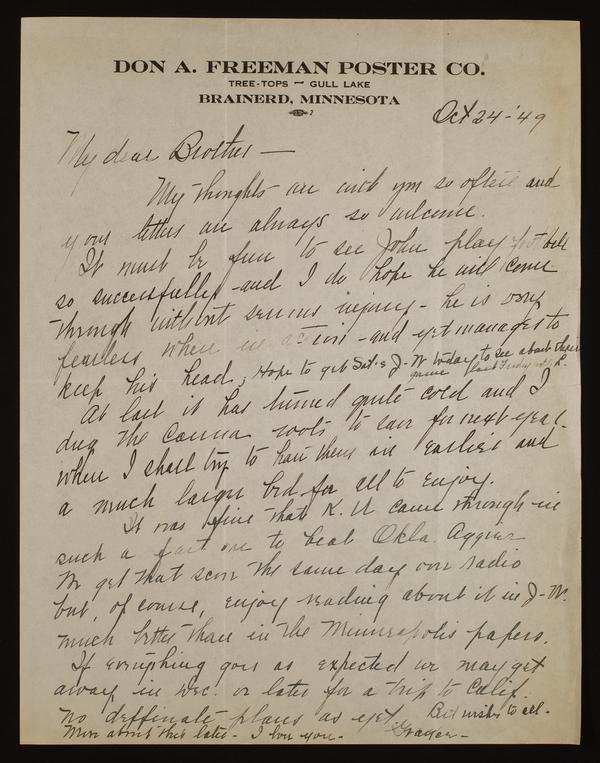 DON A. FREEMAN POSTER CO.
TREE-TOPS ~ GULL LAKE
BRAINERD, MINNESOTA
Oct 24-'49
My dear Brother —
My thoughts are with you so often and
your letters are always so welcome.
It must be fun to see John play football
so successfully - and I do hope he will come
through without serious injury - he is very
fearless when in action - and yet manages to
keep his head; Hope to get Sat's J-W today to see about their
game last Friday with
At last it has turned quite cold and I
dug the canna roots to save for next year -
when I shall try to have them in earlier and
a much larger bed for all to enjoy.
It was fine that K. U came through in
such a fast one to beat Okla. Aggies
We get that score the same day on radio
but, of course, enjoy reading about it in J-W.
much better than in the Minneapolis papers.
If everything goes as expected we may get
away in Dec. or later for a trip to Calif.
no deffinate plans as yet. Best wishes to all -
More about this later - I love you -